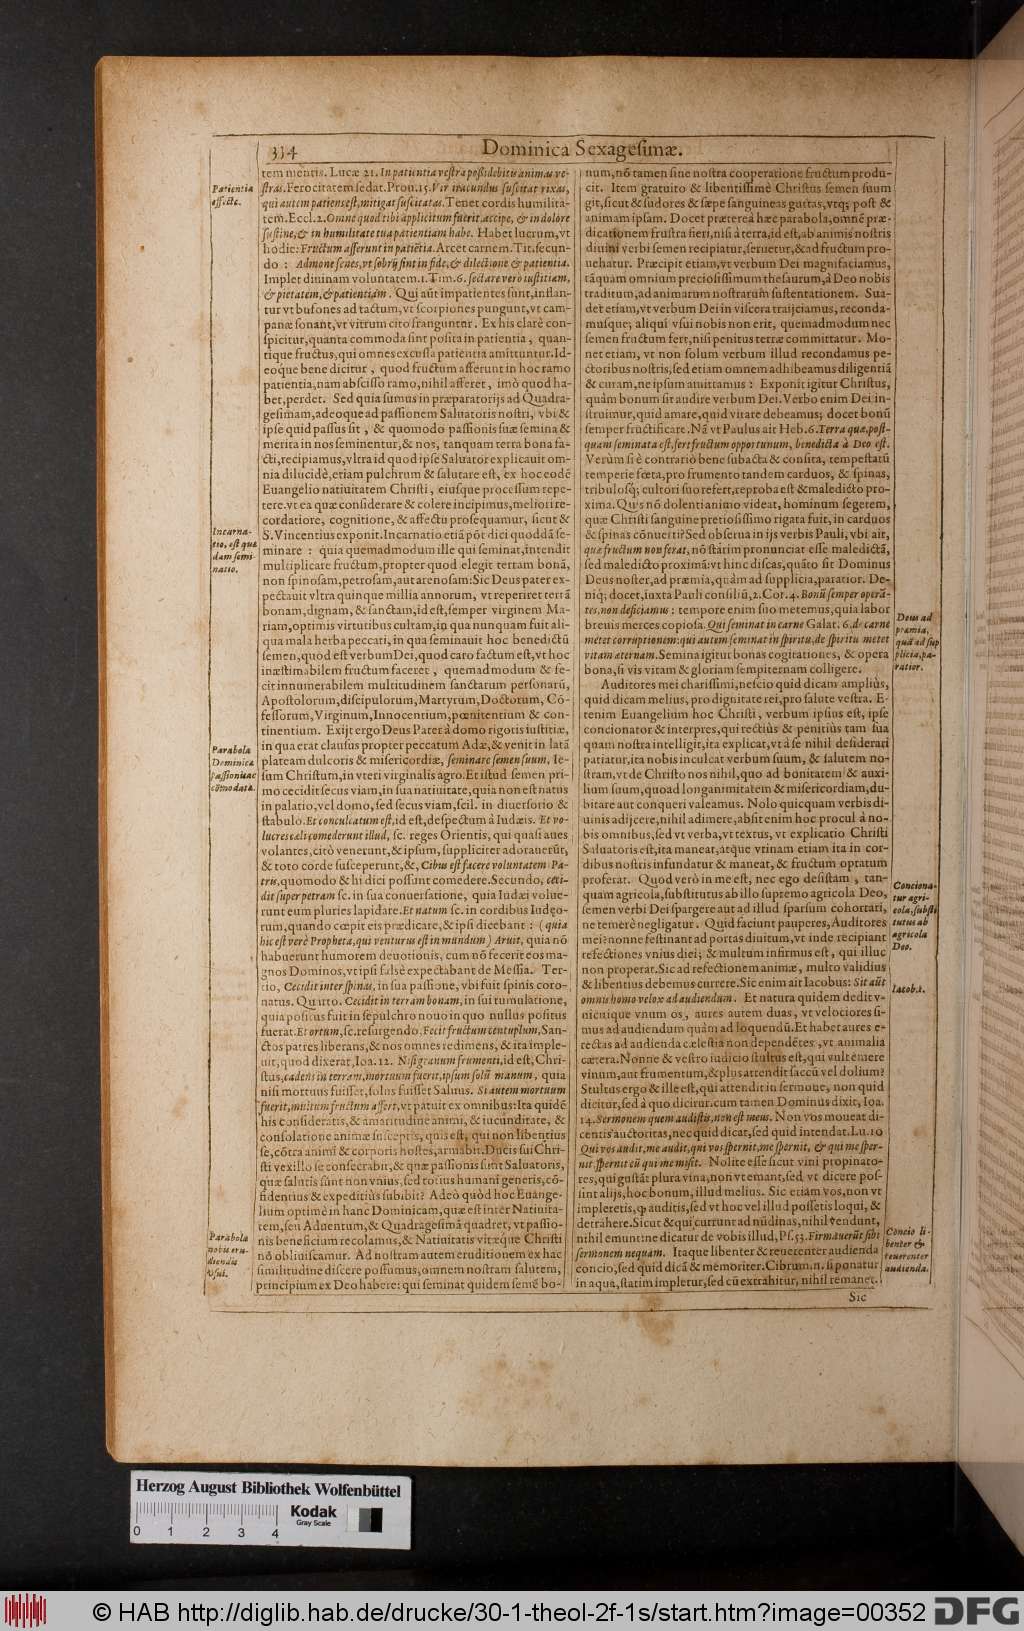 334
Dominica Sexagesimæ.
Patientia
effectc.
tem mentis. Lucæ 21. In patientia vestra possidebitis animas ve-
stras. Ferocitatem sedat. Prou. 15. Vir iracundus suscitat rixas,
qui autem patiens est, mitigat suscitatas. Tenet cordis humilita-
tem. Eccl. 2. Omne quod tibi applicitum fuerit, accipe, & in dolore
sustine, & in humilitate tua patientiam habe. Habet lucrum, vt
hodie: Fructum afferunt in patiētia. Arcet carnem. Tit. secun-
do : Admone senes, vt sobrij sint in fide, & dilectione & patientia.
Implet diuinam voluntatem. 1. Tim. 6. sectare vero iustitiam,
& pietatem, & patientiam. Qui aūt impatientes sunt, inflan-
tur vt bufones ad tactum, vt scorpiones pungunt, vt cam-
panæ sonant, vt vitrum cito franguntur. Ex his clarè con-
spicitur, quanta commoda sint posita in patientia, quan-
tique fructus, qui omnes excussa patientia amittuntur. Id-
eoque bene dicitur, quod fructum afferunt in hoc ramo
patientia, nam abscisso ramo, nihil afferet, imò quod ha-
bet, perdet. Sed quia sumus in præparatorijs ad Quadra-
gesimam, adeoque ad passionem Saluatoris nostri, vbi &
ipse quid passus sit, & quomodo passionis suæ semina &
merita in nos seminentur, & nos, tanquam terra bona fa-
cti, recipiamus, vltra id quod ipse Saluator explicauit om-
nia dilucidè, etiam pulchrum & salutare est, ex hoc eodē
Euangelio natiuitatem Christi, eiusque processum repe-
tere. vt ea quæ considerare & colere incipimus, meliori re-
cordatiore, cognitione, & affectu prosequamur, sicut &
Incarna-
tio, est quæ
dam semi-
natio.
S. Vincentius exponit. Incarnatio etiā pōt dici quoddā se-
minare : quia quemadmodum ille qui seminat, intendit
multiplicare fructum, propter quod elegit terram bonā,
non spinosam, petrosam, aut arenosam: Sic Deus pater ex-
pectauit vltra quinque millia annorum, vt reperiret terrā
bonam, dignam, & sanctam, id est, semper virginem Ma-
riam, optimis virtutibus cultam, in qua nunquam fuit ali-
qua mala herba peccati, in qua seminauit hoc benedictū
semen, quod est verbum Dei, quod caro factum est, vt hoc
inæstimabilem fructum faceret, quemadmodum & fe-
cit innumerabilem multitudinem sanctarum personarū,
Apostolorum, discipulorum, Martyrum, Doctorum, Cō-
fessorum, Virginum, Innocentium, pœnitentium & con-
tinentium. Exijt ergo Deus Pater à domo rigoris iustitiæ,
Parabola
Dominicæ
passioni ac
cōmodata.
in qua erat clausus propter peccatum Adæ, & venit in latā
plateam dulcoris & misericordiæ, seminare semen suum, Ie-
sum Christum, in vteri virginalis agro. Et istud semen pri-
mo cecidit secus viam, in sua natiuitate, quia non est natus
in palatio, vel domo, sed secus viam, scil. in diuersorio &
stabulo. Et conculcatum est, id est, despectum à Iudæis. Et vo-
lucres cæli comederunt illud, sc. reges Orientis, qui quasi aues
volantes, citò venerunt, & ipsum, suppliciter adorauerūt,
& toto corde susceperunt, &, Cibus est facere voluntatem Pa-
tris, quomodo & hi dici possunt comedere. Secundo, ceci-
dit super petram sc. in sua conuersatione, quia Iudæi volue-
runt eum pluries lapidare. Et natum sc. in cordibus Iudęo-
rum, quando cœpit eis prædicare, & ipsi dicebant : (quia
hic est verè Propheta, qui venturus est in mundum) Aruit, quia nō
habuerunt humorem deuotionis, cum nō fecerit eos ma-
gnos Dominos, vt ipsi falsè expectabant de Messia. Ter-
cio, Cecidit inter spinas, in sua passione, vbi fuit spinis coro-
natus. Quarto. Cecidit in terram bonam, in sui tumulatione,
quia positus fuit in sepulchro nouo in quo nullus positus
fuerat. Et ortum, sc. resurgendo. Fecit fructum centuplum, San-
ctos patres liberans, & nos omnes redimens, & ita imple-
uit, quod dixerat, Ioa. 12. Nisi granum frumenti, id est, Chri-
stus, cadens in terram, mortuum fuerit, ipsum solū manum, quia
nisi mortuus fuisset, solus fuisset Saluus. Si autem mortuum
fuerit, multum fructum affert, vt patuit ex omnibus: Ita quidē
his consideratis, & amaritudine animi, & iucunditate, &
consolatione animæ susceptis, quis est, qui non libentius
se, cōtra animi & corporis hostes, armabit. Ducis sui Chri-
sti vexillo se consecrabit, & quæ passionis sunt Saluatoris,
quæ salutis sunt non vnius, sed totius humani generis, cō-
fidentius & expeditius subibit? Adeò quòd hoc Euange-
lium optimè in hanc Dominicam, quæ est inter Natiuita-
tem, seu Aduentum, & Quadragesimā quadret, vt passio-
Parabola
nobis eru-
diendis
vsui.
nis beneficium recolamus, & Natiuitatis vtæque Christi
nō obliuiscamur. Ad nostram autem eruditionem ex hac
similitudine discere possumus, omnem nostram salutem,
principium ex Deo habere: qui seminat quidem semē bo-
num, nō tamen sine nostra cooperatione fructum produ-
cit. Item gratuito & libentissimè Christus semen suum
git, sicut & sudores & sæpe sanguineas guttas, vtq; post &
animam ipsam. Docet prætereà hæc parabola, omnē præ-
dicationem frustra fieri, nisi à terra, id est, ab animis nostris
diuini verbi semen recipiatur, seruetur, & ad fructum pro-
uehatur. Præcipit etiam, vt verbum Dei magnifaciamus,
tāquam omnium preciosissimum thesaurum, à Deo nobis
traditum, ad animarum nostrarum sustentationem. Sua-
det etiam, vt verbum Dei in viscera traijciamus, reconda-
musque; aliqui vsui nobis non erit, quemadmodum nec
semen fructum fert, nisi penitus terræ committatur. Mo-
net etiam, vt non solum verbum illud recondamus pe-
ctoribus nostris, sed etiam omnem adhibeamus diligentiā
& curam, ne ipsum amittamus : Exponit igitur Christus,
quàm bonum sit audire verbum Dei. Verbo enim Dei in-
struimur, quid amare, quid vitare debeamus; docet bonū
semper fructificare. Nā vt Paulus ait Heb. 6. Terra quæ, post-
quam seminata est, fert fructum opportunum, benedicta à Deo est.
Verùm si è contrario bene subacta & consita, tempestatū
temperie fœta, pro frumento tandem carduos, & spinas,
tribulosq; cultori suo refert, reproba est & maledicto pro-
xima. Quis nō dolenti animo videat, hominum segetem,
quæ Christi sanguine pretiosissimo rigata fuit, in carduos
& spinas cōuerti? Sed obserua in ijs verbis Pauli, vbi ait,
quæ fructum non ferat, nō stātim pronunciat esse maledictā,
sed maledicto proximā: vt hinc discas, quāto sit Dominus
Deus noster, ad præmia, quàm ad supplicia, paratior. De-
niq; docet, iuxta Pauli consiliū, 2. Cor. 4. Bonū semper operā-
tes, non deficiamus : tempore enim suo metemus, quia labor
Deus ad
præmia,
quā ad sup
plicia, pa-
ratior.
breuis merces copiosa. Qui seminat in carne Galat. 6. de carne
metet corruptionem: qui autem seminat in spiritu, de spiritu metet
vitam æternam. Semina igitur bonas cogitationes, & opera
bona, si vis vitam & gloriam sempiternam colligere.
Auditores mei charissimi, nescio quid dicam ampliùs,
quid dicam melius, pro dignitate rei, pro salute vestra. E-
tenim Euangelium hoc Christi, verbum ipsius est, ipse
concionator & interpres, qui rectiùs & penitiùs tam sua
quam nostra intelligit, ita explicat, vt à se nihil desiderari
patiatur, ita nobis inculcat verbum suum, & salutem no-
stram, vt de Christo nos nihil, quo ad bonitatem & auxi-
lium suum, quoad longanimitatem & misericordiam, du-
bitare aut conqueri valeamus. Nolo quicquam verbis di-
uinis adijcere, nihil adimere, absit enim hoc procul à no-
bis omnibus, sed vt verba, vt textus, vt explicatio Christi
Saluatoris est, ita maneat, atque vtinam etiam ita in cor-
dibus nostris infundatur & maneat, & fructum optatum
proferat. Quod verò in me est, nec ego desistam, tan-
Conciona-
tur agri-
cola, substi
tutus ab
agricola
Deo.
quam agricola, substitutus ab illo supremo agricola Deo,
semen verbi Dei spargere aut ad illud sparsum cohortari,
ne temerè negligatur. Quid faciunt pauperes, Auditores
mei? nonne festinant ad portas diuitum, vt inde recipiant
refectiones vnius diei; & multum infirmus est, qui illuc
non properat. Sic ad refectionem animæ, multo validius
& libentius debemus currere. Sic enim ait Iacobus: Sit aūt
Iacob. 1.
omnis homo velox ad audiendum. Et natura quidem dedit v-
nicuique vnum os, aures autem duas, vt velociores si-
mus ad audiendum quàm ad loquendū. Et habet aures e-
rectas ad audienda cælestia non dependētes, vt animalia
cætera. Nonne & vestro iudicio stultus est, qui vult emere
vinum, aut frumentum, & plus attendit saccū vel dolium?
Stultus ergo & ille est, qui attendit in sermone, non quid
dicitur, sed à quo dicitur. cum tamen Dominus dixit, Ioa.
14. Sermonem quem audistis, non est meus. Non vos moueat di-
centis auctoritas, nec quid dicat, sed quid intendat. Lu. 10
Qui vos audit, me audit, qui vos spernit, me spernit, & qui me sper-
nit, spernit eū qui me misit. Nolite esse sicut vini propinato-
res, qui gustāt plura vina, non vt emant, sed vt dicere pos-
sint alijs, hoc bonum, illud melius. Sic etiam vos, non vt
impleretis, quę auditis, sed vt hoc vel illud possetis loqui, &
detrahere. Sicut & qui currunt ad nūdinas, nihil vendunt,
Concio li-
benter &
reuerenter
audienda.
nihil emunt ine dicatur de vobis illud, Ps. 53. Firmauerūt sibi
sermonem nequam. Itaque libenter & reuerenter audienda
concio, sed quid dicā & memoriter. Cibrum. n. si ponatur
in aqua, statim impletur, sed cū extrahitur, nihil remanet.
Sic
Herzog August Bibliothek Wolfenbüttel
Kodak
Gray Scale
0 1 2 3 4
© HAB http://diglib.hab.de/drucke/30-1-theol-2f-1s/start.htm?image=00352
DFG